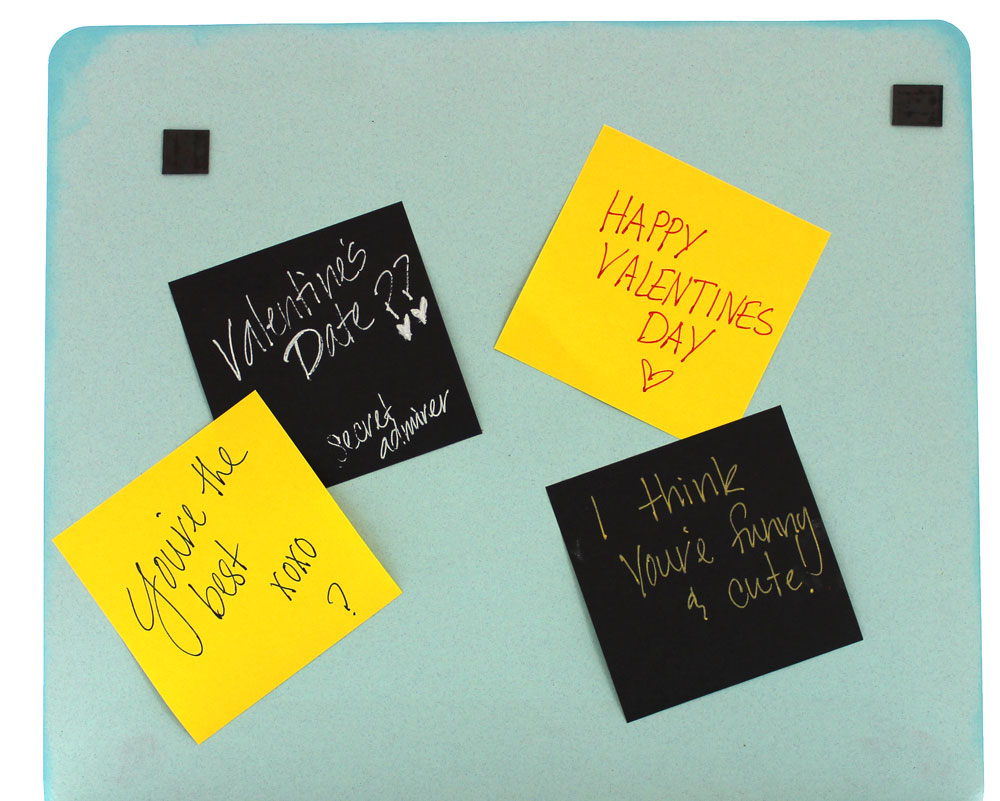 Valentine's
Date ??
secret
admirer
HAPPY
VALENTINES
DAY
You're the
best
xoxo
?
I think
You're funny
& cute!